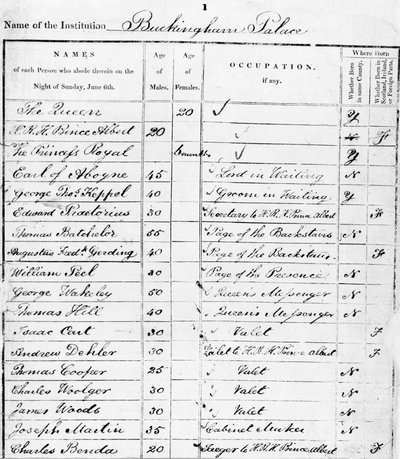 1
Name of the Institution Buckingham Palace
NAMES of each Person who abode therein on the Night of Sunday, June 6th. | Age of Males. | Age of Females. | OCCUPATION, if any. | Where Born | Whether Born in same County. | Whether Born in Scotland, Ireland, or Foreign Parts.
The Queen 20 ✓ Y
H.R.H. Prince Albert 20 ✓ F
The Princess Royal 6 months ✓ Y
Earl of Aboyne 45 Lord in Waiting N
George Thos. Keppel 40 Groom in Waiting Y
Edward Praetorius 30 Secretary to H.R.H. Prince Albert F
Thomas Batchelor 55 Page of the Backstairs N
Augustus Fredk. Gerding 40 Page of the Backstairs F
William Seel 30 Page of the Presence N
George Wakeley 50 Queen's Messenger N
Thomas Hill 40 Queen's Messenger N
Isaac Cart 30 Valet F
Andrew Dehler 30 Valet to H.R.H. Prince Albert F
Thomas Cooper 25 Valet N
Charles Woolger 30 Valet N
James Woods 30 Valet N
Joseph Martin 35 Cabinet Maker N
Charles Benda 20 Jaeger to H.R.H. Prince Albert F